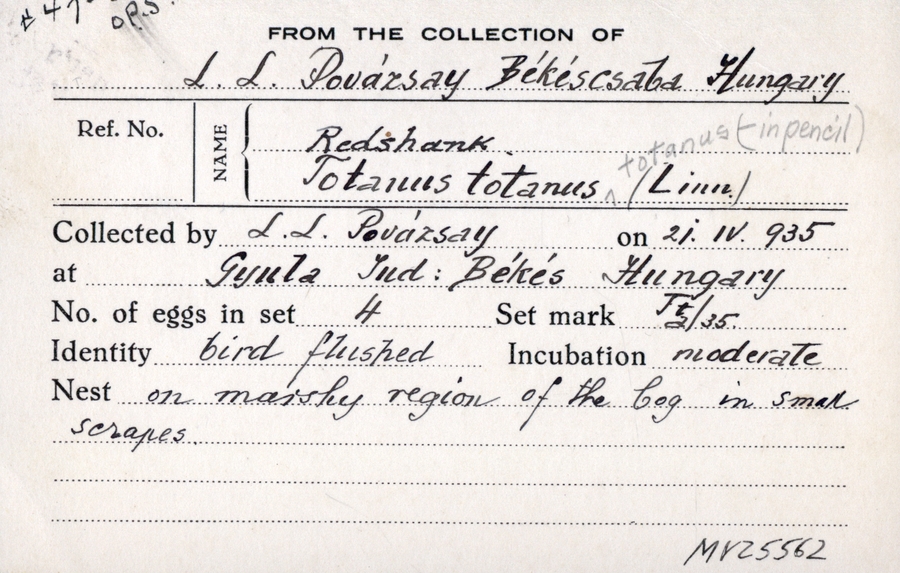 #47
O.P.S.
FROM THE COLLECTION OF
L. L. Povázsay Békéscsaba Hungary
Ref. No.
NAME
Redshank.
totanus (-in pencil)
Totanus totanus (Linn.)
Collected by L.L. Povázsay on 21. IV. 935
at Gyula Jud: Békés Hungary
No. of eggs in set 4 Set mark Tt 2/35.
Identity bird flushed Incubation moderate
Nest on marshy region of the bog in small
scrapes.
MV25562